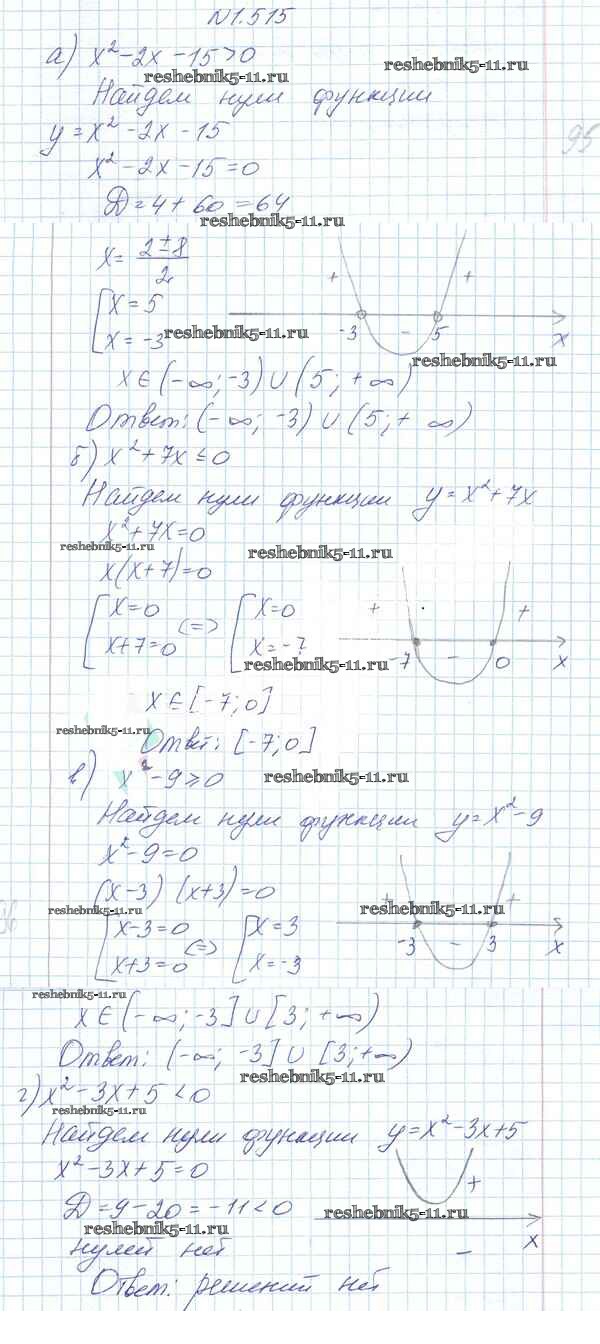 N1.515
а) x² - 2x - 15 > 0
reshebnik5-11.ru
reshebnik5-11.ru
Найдем нули функции
y = x² - 2x - 15
95
x² - 2x - 15 = 0
Д = 4 + 60 = 64
reshebnik5-11.ru
x = (2 ± 8)/2
[ x = 5
x = -3
reshebnik5-11.ru
+ +
-3 - 5 x
reshebnik5-11.ru
x ∈ (-∞; -3) ∪ (5; +∞)
Ответ: (-∞; -3) ∪ (5; + ∞)
б) x² + 7x ≤ 0
Найдем нули функции y = x² + 7x
x² + 7x = 0
reshebnik5-11.ru
reshebnik5-11.ru
x(x+7) = 0
[ x = 0 <=> [ x = 0
x+7 = 0 x = -7
+ +
-7 - 0 x
reshebnik5-11.ru
x ∈ [-7; 0]
reshebnik5-11.ru
Ответ: [-7; 0]
в) x² - 9 ≥ 0
reshebnik5-11.ru
Найдем нули функции y = x² - 9
x² - 9 = 0
(x-3) (x+3) = 0
reshebnik5-11.ru
reshebnik5-11.ru
[ x-3 = 0 <=> [ x = 3
x+3 = 0 x = -3
+ +
-3 - 3 x
reshebnik5-11.ru
x ∈ (-∞; -3] ∪ [3; +∞)
Ответ: (-∞; -3] ∪ [3; +∞)
reshebnik5-11.ru
г) x² - 3x + 5 < 0
reshebnik5-11.ru
Найдем нули функции y = x² - 3x + 5
x² - 3x + 5 = 0
+
Д = 9 - 20 = -11 < 0
reshebnik5-11.ru
reshebnik5-11.ru
x
нулей нет
-
Ответ: решений нет